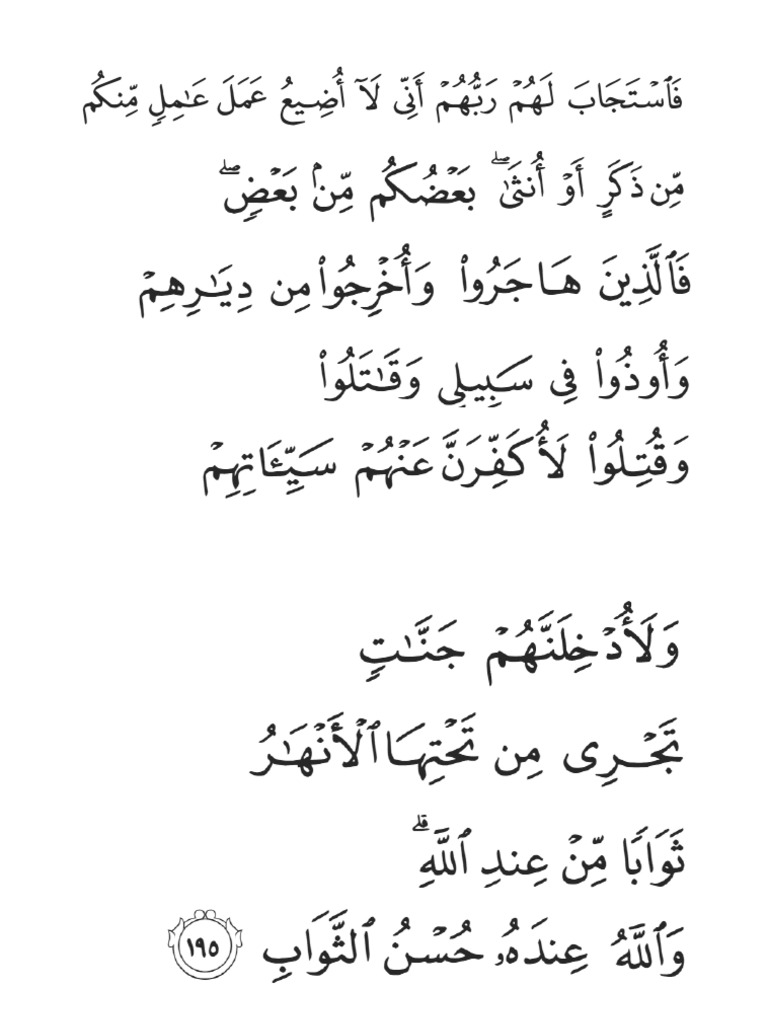 فَٱسْتَجَابَ لَهُمْ رَبُّهُمْ أَنِّى لَآ أُضِيعُ عَمَلَ عَـٰمِلٍ مِّنكُم
مِّن ذَكَرٍ أَوْ أُنثَىٰ ۖ بَعْضُكُم مِّنۢ بَعْضٍ ۖ
فَٱلَّذِينَ هَاجَرُوا۟ وَأُخْرِجُوا۟ مِن دِيَـٰرِهِمْ
وَأُوذُوا۟ فِى سَبِيلِى وَقَـٰتَلُوا۟
وَقُتِلُوا۟ لَأُكَفِّرَنَّ عَنْهُمْ سَيِّـَٔاتِهِمْ
وَلَأُدْخِلَنَّهُمْ جَنَّـٰتٍ
تَجْرِى مِن تَحْتِهَا ٱلْأَنْهَـٰرُ
ثَوَابًا مِّنْ عِندِ ٱللَّهِ ۗ
وَٱللَّهُ عِندَهُۥ حُسْنُ ٱلثَّوَابِ ١٩٥